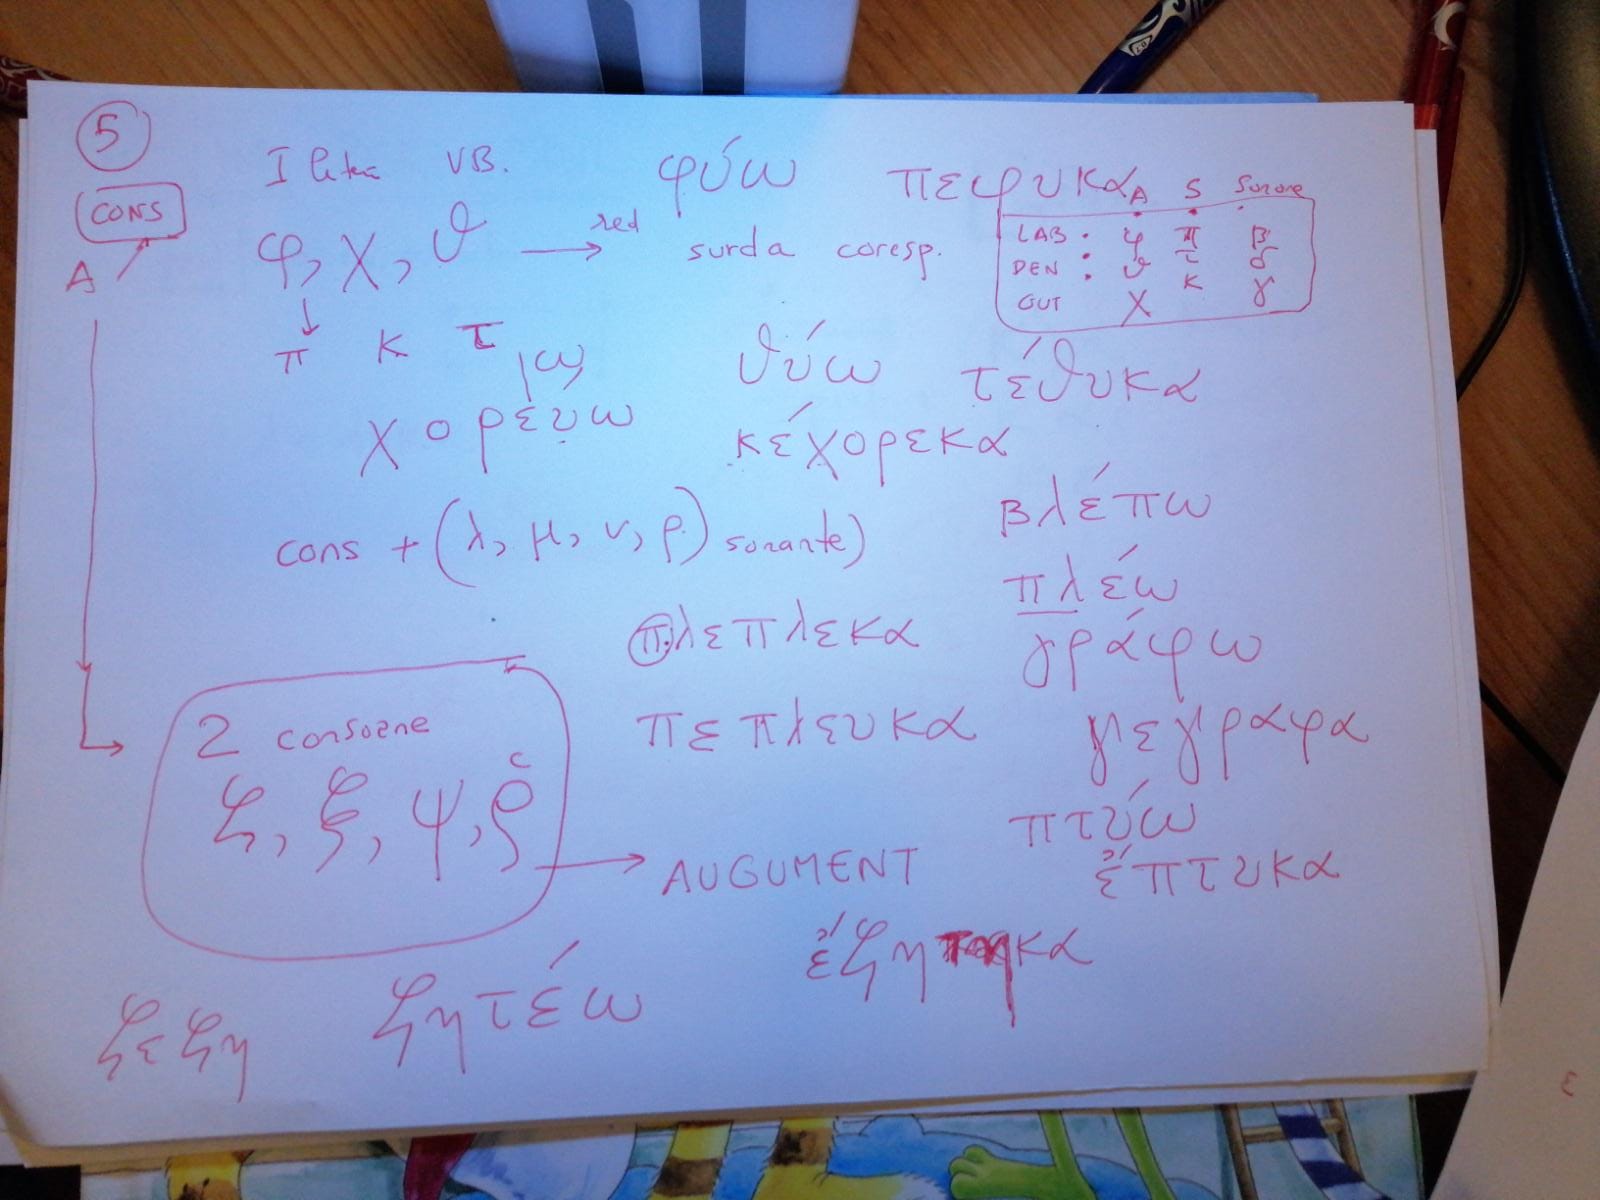 5
CONS
A
I litera VB.
φύω πεφυκα
φ, χ, θ → red surda coresp.
A S Sonore
LAB : φ π β
DEN : θ τ δ
GUT χ κ γ
π κ τ
χορεύω
θύω τέθυκα
κέχορεκα
cons + (λ, μ, ν, ρ) sonante)
βλέπω
πλέω
πλεπλεκα
γράφω
πεπλευκα
γεγραφα
2 consoane
ζ, ξ, ψ, ῥ
→ AUGUMENT
πτύω
ἔπτυκα
ἔζητηκα
ζεζη ζητέω
ε